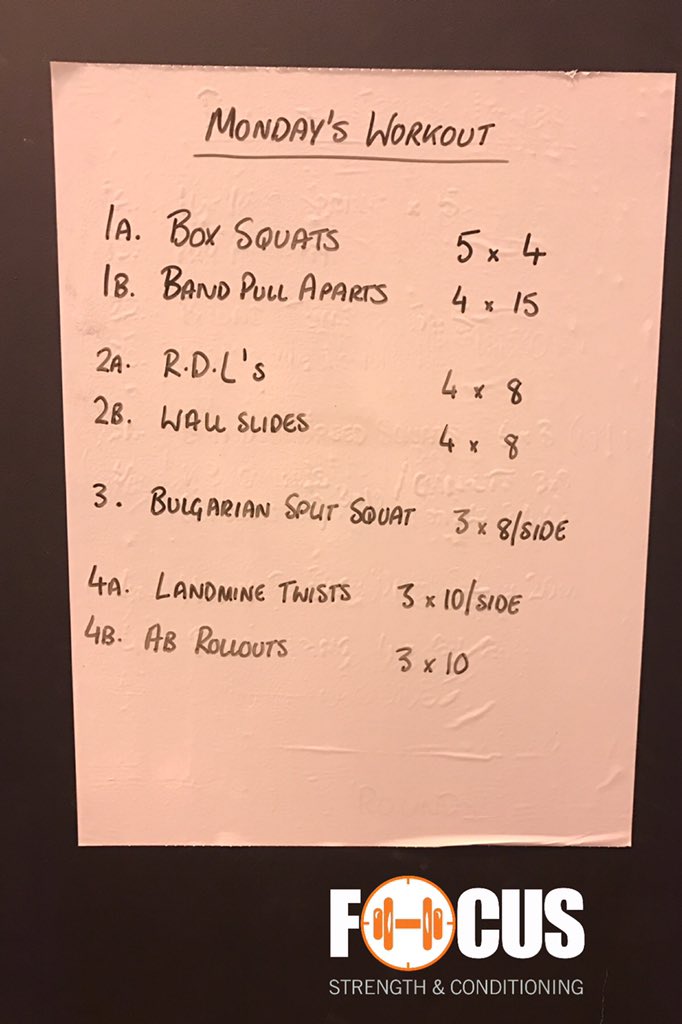 MONDAY'S WORKOUT
1A. BOX SQUATS 5 x 4
1B. BAND PULL APARTS 4 x 15
2A. R.D.L's 4 x 8
2B. WALL SLIDES 4 x 8
3. BULGARIAN SPLIT SQUAT 3 x 8/SIDE
4A. LANDMINE TWISTS 3 x 10/SIDE
4B. AB ROLLOUTS 3 x 10
FOCUS
STRENGTH & CONDITIONING